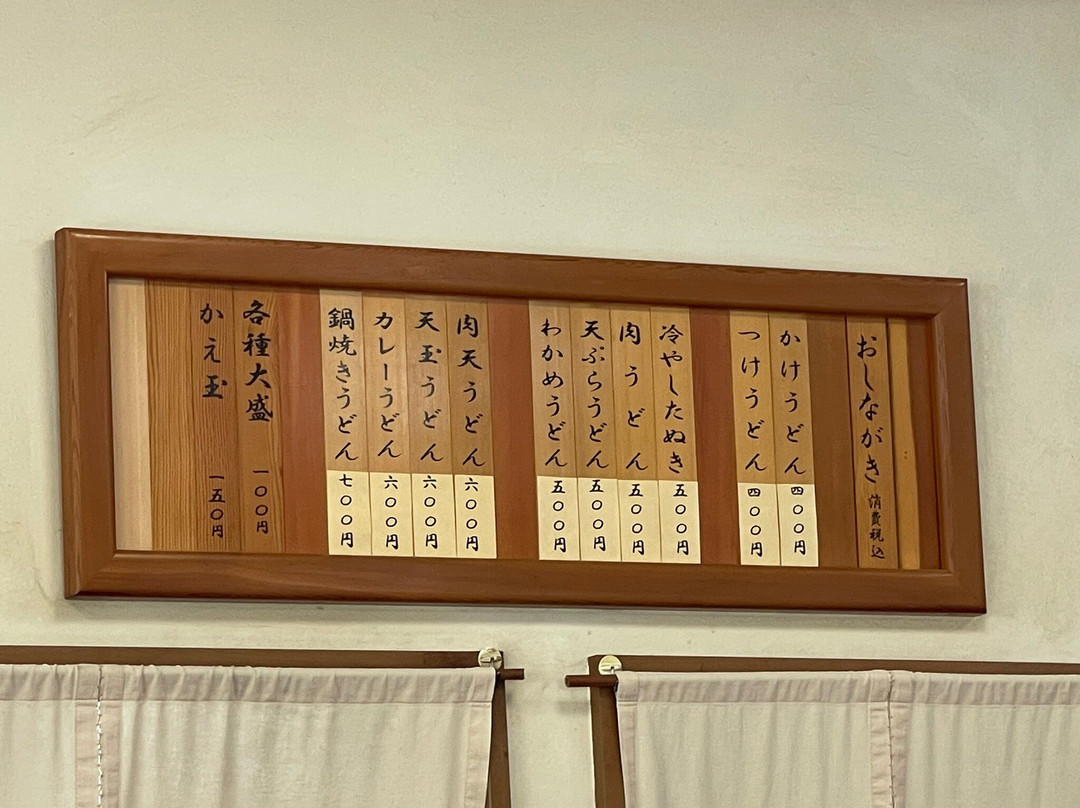 おしながき 消費税込
かけうどん 四〇〇円
つけうどん 四〇〇円
冷やしたぬき 五〇〇円
肉うどん 五〇〇円
天ぷらうどん 五〇〇円
わかめうどん 五〇〇円
肉天うどん 六〇〇円
天玉うどん 六〇〇円
カレーうどん 六〇〇円
鍋焼きうどん 七〇〇円
各種大盛 一〇〇円
かえ玉 一五〇円